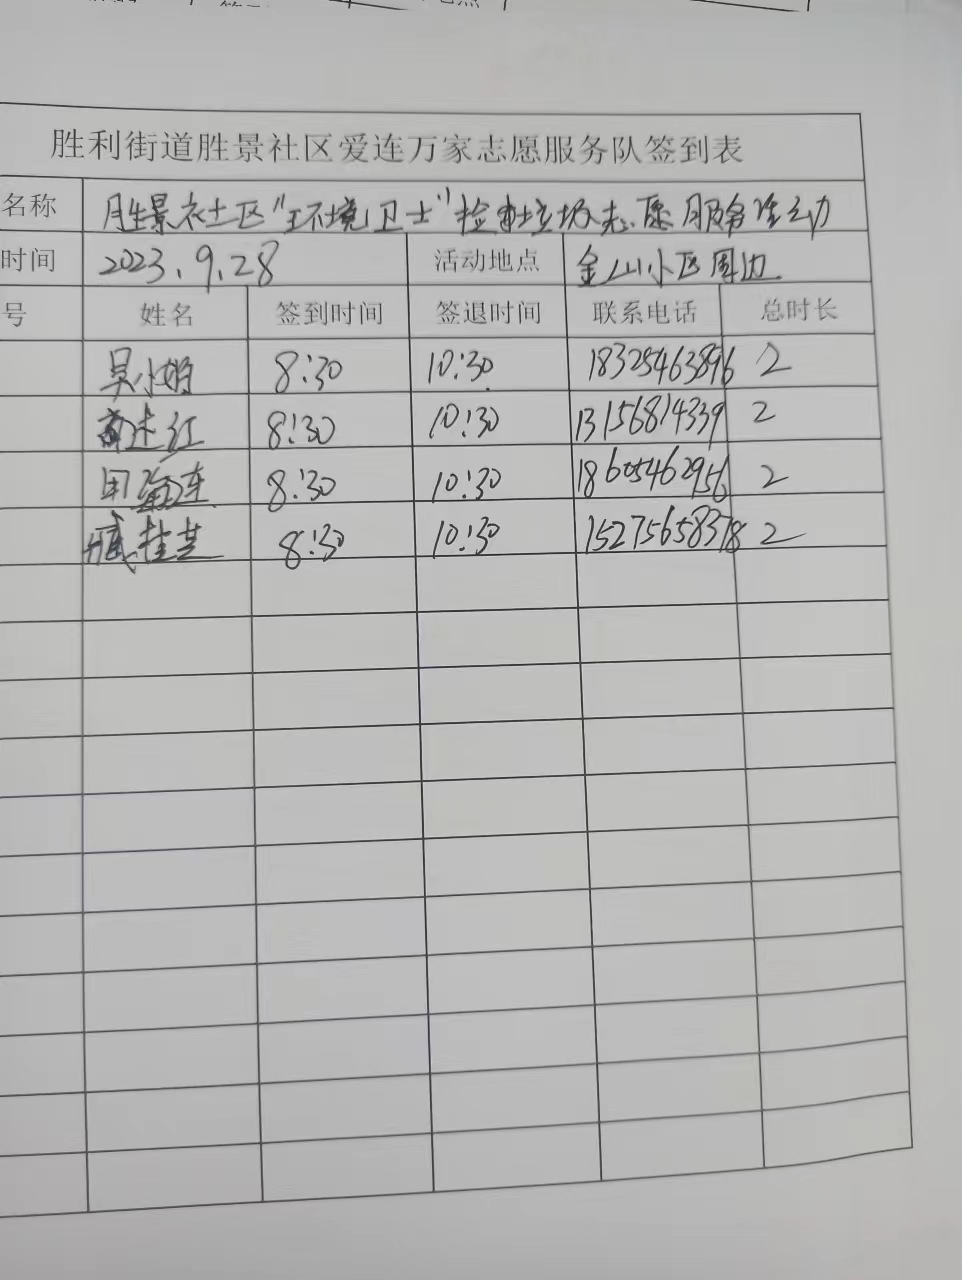 胜利街道胜景社区爱连万家志愿服务队签到表
名称 胜景社区"环境卫士"捡垃圾志愿服务活动
时间 2023.9.28 活动地点 金山小区周边
号 姓名 签到时间 签退时间 联系电话 总时长
吴小娟 8:30 10:30 18325463896 2
8:30 10:30 13156814339 2
周海连 8:30 10:30 18605462956 2
臧桂芝 8:30 10:30 15275658378 2